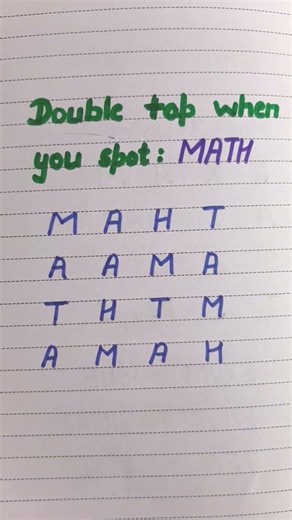 Double tap when
you spot: MATH
M A H T
A A M A
T H T M
A M A H